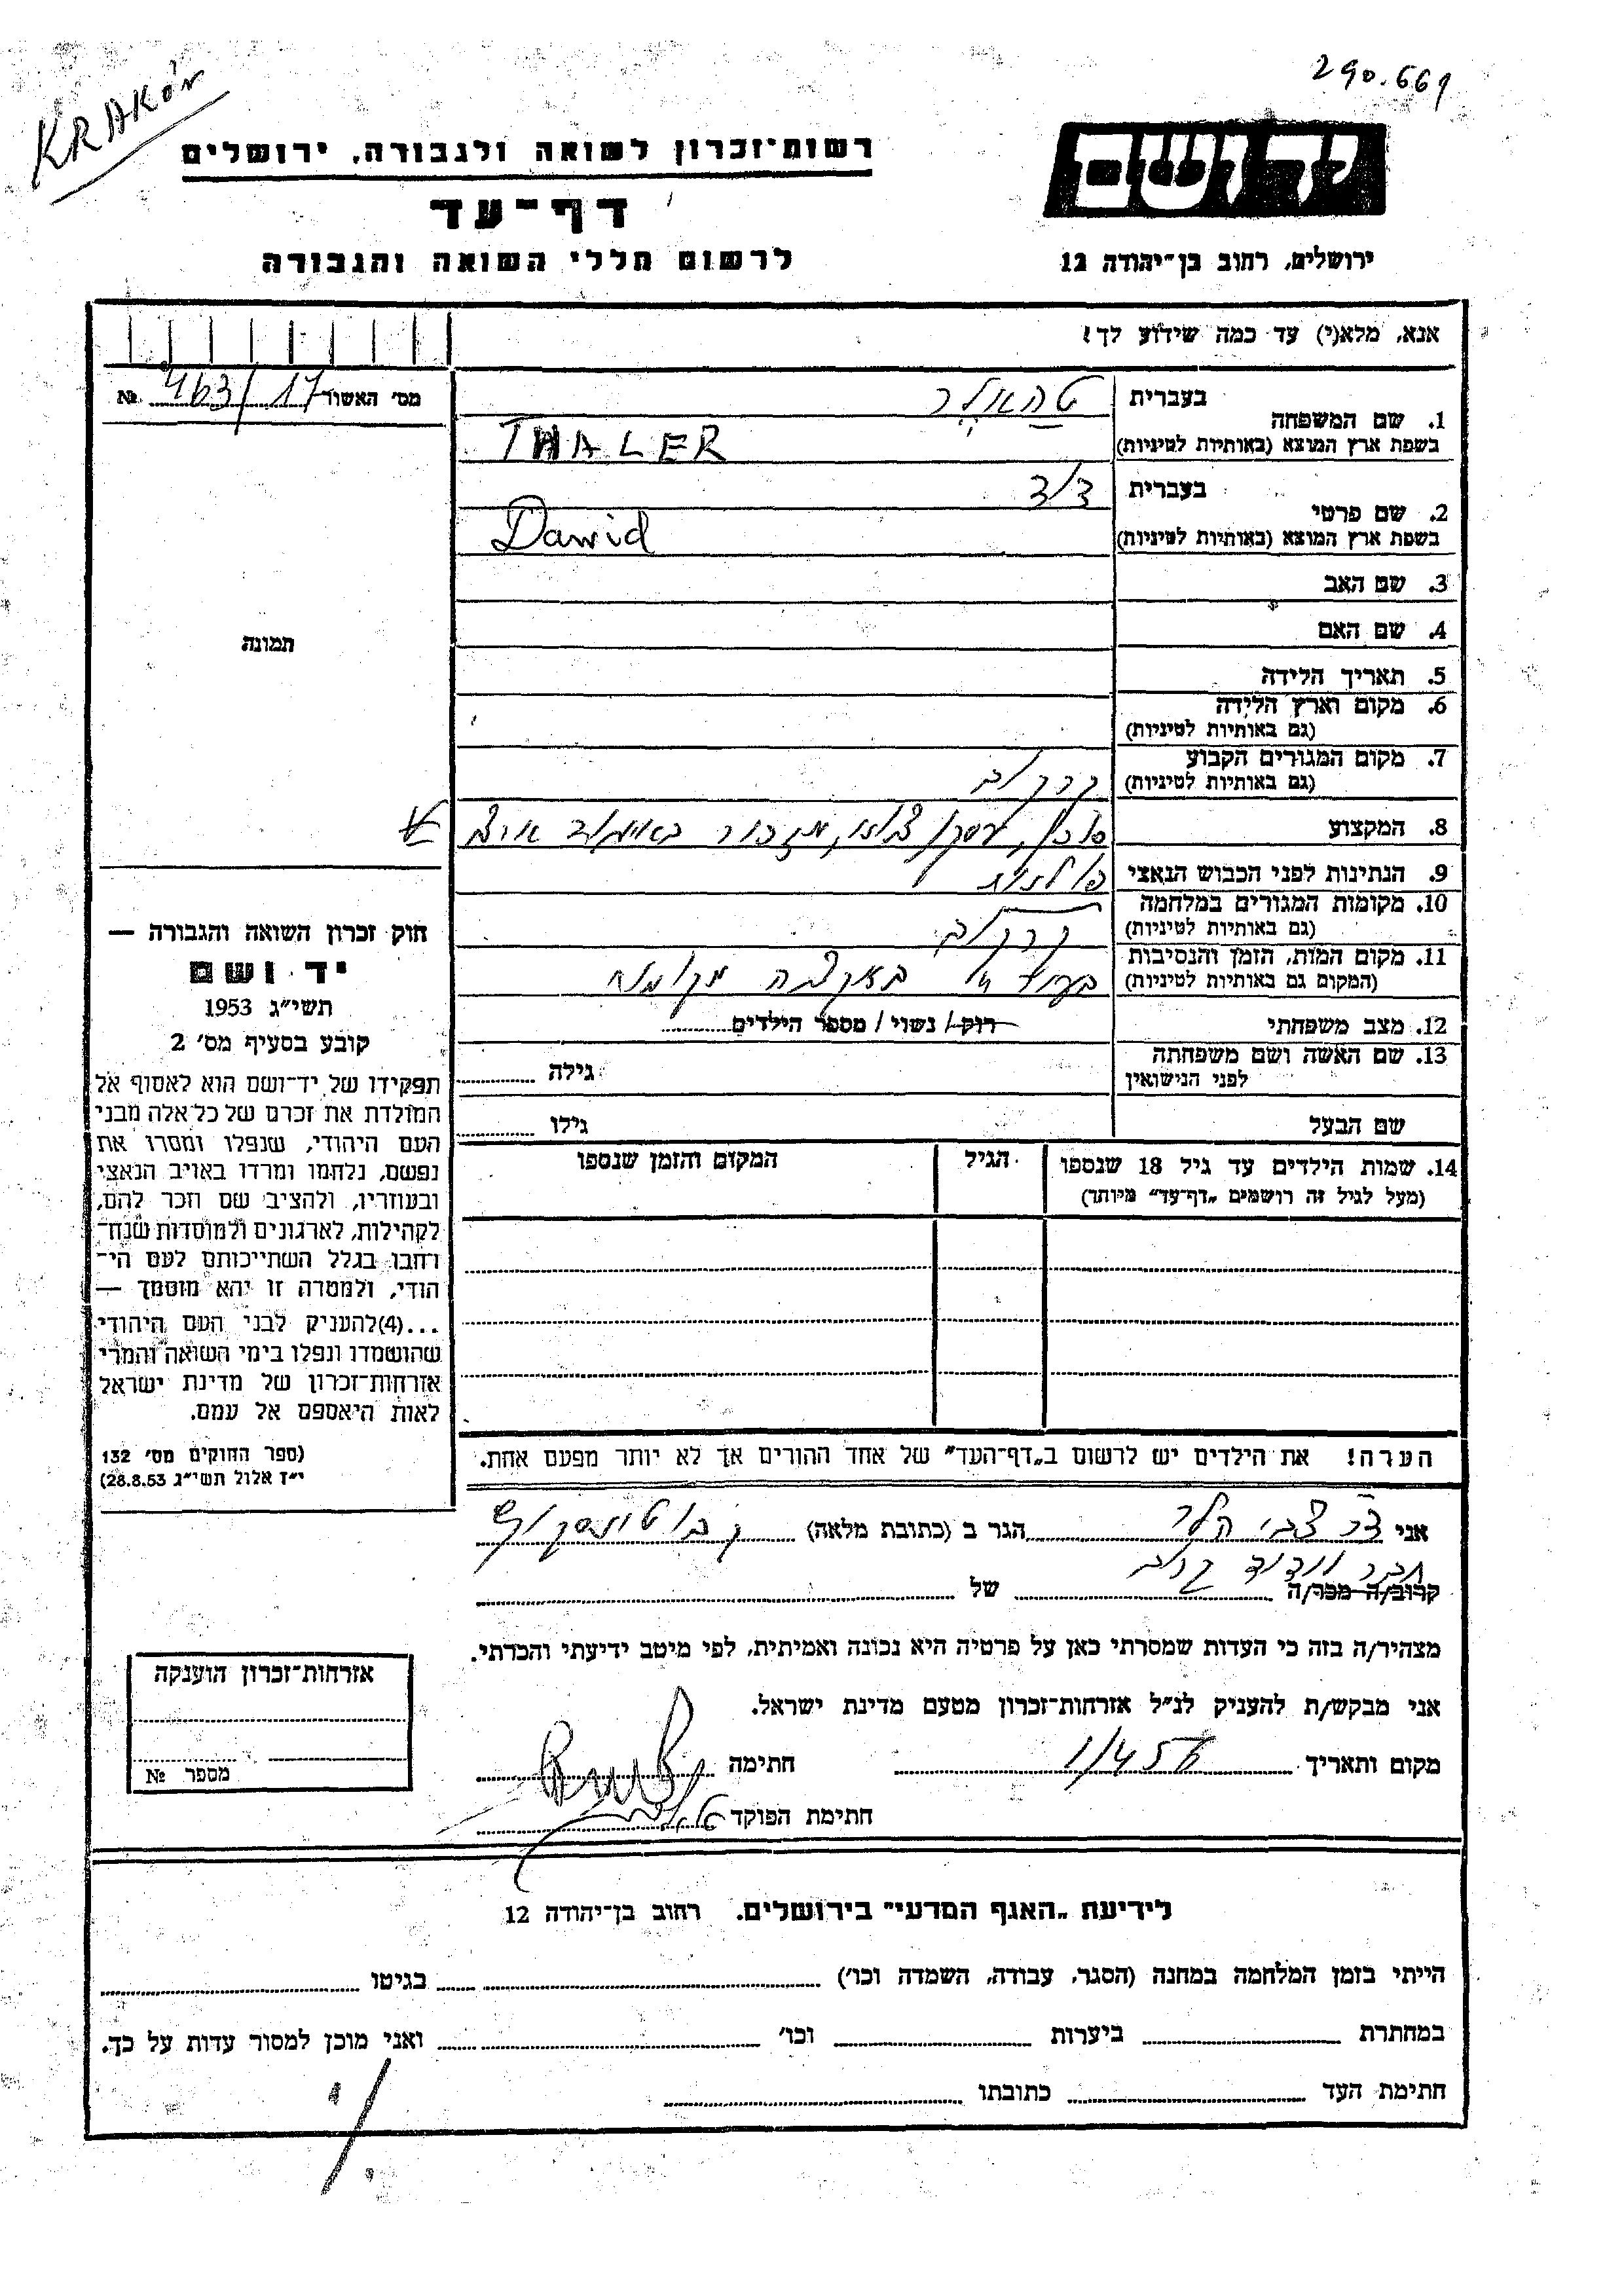 KRAKów
290.669
רשות־זכרון לשואה ולגבורה, ירושלים
דף־עד
לרשום חללי השואה והגבורה
ירושלים, רחוב בן־יהודה 12
אנא, מלא(י) עד כמה שידוע לך!
מס' האשור 463/17 №
1. שם המשפחה
בעברית
בשפת ארץ המוצא (באותיות לטיניות) THALER
2. שם פרטי
בעברית דוד
בשפת ארץ המוצא (באותיות לטיניות) Dawid
3. שם האב
4. שם האם
5. תאריך הלידה
6. מקום וארץ הלידה
(גם באותיות לטיניות)
7. מקום המגורים הקבוע
(גם באותיות לטיניות) קרקוב
8. המקצוע סוכן, עסקן
9. הנתינות לפני הכבוש הנאצי פולנית
10. מקומות המגורים במלחמה
(גם באותיות לטיניות) קרקוב
11. מקום המות, הזמן והנסיבות
(המקום גם באותיות לטיניות)
12. מצב משפחתי רוק/ נשוי/ מספר הילדים
13. שם האשה ושם משפחתה
לפני הנישואין
גילה
שם הבעל
גילו
14. שמות הילדים עד גיל 18 שנספו
(מעל לגיל זה רושמים „דף־עד״ מיוחד)
הגיל
המקום והזמן שנספו
הערה! את הילדים יש לרשום ב„דף־העד״ של אחד ההורים אך לא יותר מפעם אחת.
תמונה
חוק זכרון השואה והגבורה —
יד ושם
תשי״ג 1953
קובע בסעיף מס' 2
תפקידו של יד־ושם הוא לאסוף אל
המולדת את זכרם של כל אלה מבני
העם היהודי, שנפלו ומסרו את
נפשם, נלחמו ומרדו באויב הנאצי
ובעוזריו, ולהציב שם וזכר להם,
לקהילות, לארגונים ולמוסדות שנח־
רבו בגלל השתייכותם לעם הי־
הודי, ולמטרה זו יהא מוסמך —
...(4)להעניק לבני העם היהודי
שהושמדו ונפלו בימי השואה והמרי
אזרחות־זכרון של מדינת ישראל
לאות היאספם אל עמם.
(ספר החוקים מס' 132
י״ז אלול תשי״ג 28.8.53)
אני הגר ב (כתובת מלאה)
קרוב/ה מכר/ה של
מצהיר/ה בזה כי העדות שמסרתי כאן על פרטיה היא נכונה ואמיתית, לפי מיטב ידיעתי והכרתי.
אני מבקש/ת להעניק לנ״ל אזרחות־זכרון מטעם מדינת ישראל.
מקום ותאריך חתימה
חתימת הפוקד
אזרחות־זכרון הוענקה
מספר №
לידיעת „האגף המדעי״ בירושלים. רחוב בן־יהודה 12
הייתי בזמן המלחמה במחנה (הסגר, עבודה, השמדה וכו') בגיטו
במחתרת ביערות וכו' ואני מוכן למסור עדות על כך.
חתימת העד כתובתו